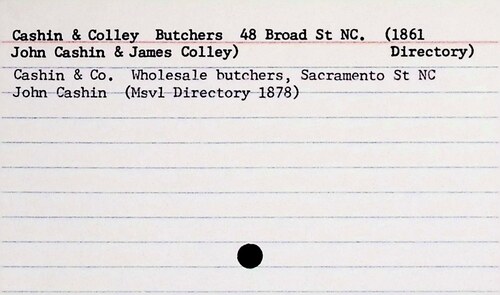 Cashin & Colley Butchers 48 Broad St NC. (1861
John Cashin & James Colley) Directory)
Cashin & Co. Wholesale butchers, Sacramento St NC
John Cashin (Msvl Directory 1878)